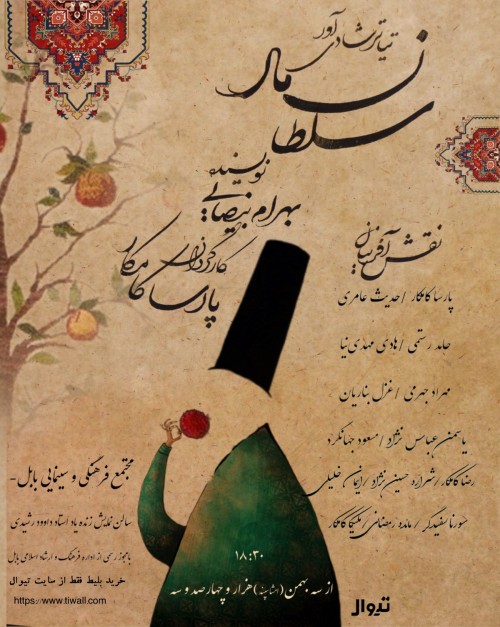 تیاتر شادی‌آور
سلطان مار
نویسنده
بهرام بیضایی
کارگردان
پارسا کامکار
نقش آفرینان
پارسا کامکار / حدیث عامری
حامد رستمی / هادی مهدی‌نیا
مهراد جهرمی / غزل بناریان
یاسمن عباس نژاد / مسعود جهانگرد
رضا کامکار / شهرزاد حسین نژاد / ایمان خلیلی
سورنا سفیدگر / مائده رمضانی / ملیکا کامکار
مجتمع فرهنگی و سینمایی بابل-
سالن نمایش زنده یاد استاد داوود رشیدی
با مجوز رسمی از اداره فرهنگ و ارشاد اسلامی بابل
خرید بلیط فقط از سایت تیوال
https://www.tiwall.com
۱۸:۳۰
از سه بهمن هزار و چهارصد و سه
تیوال